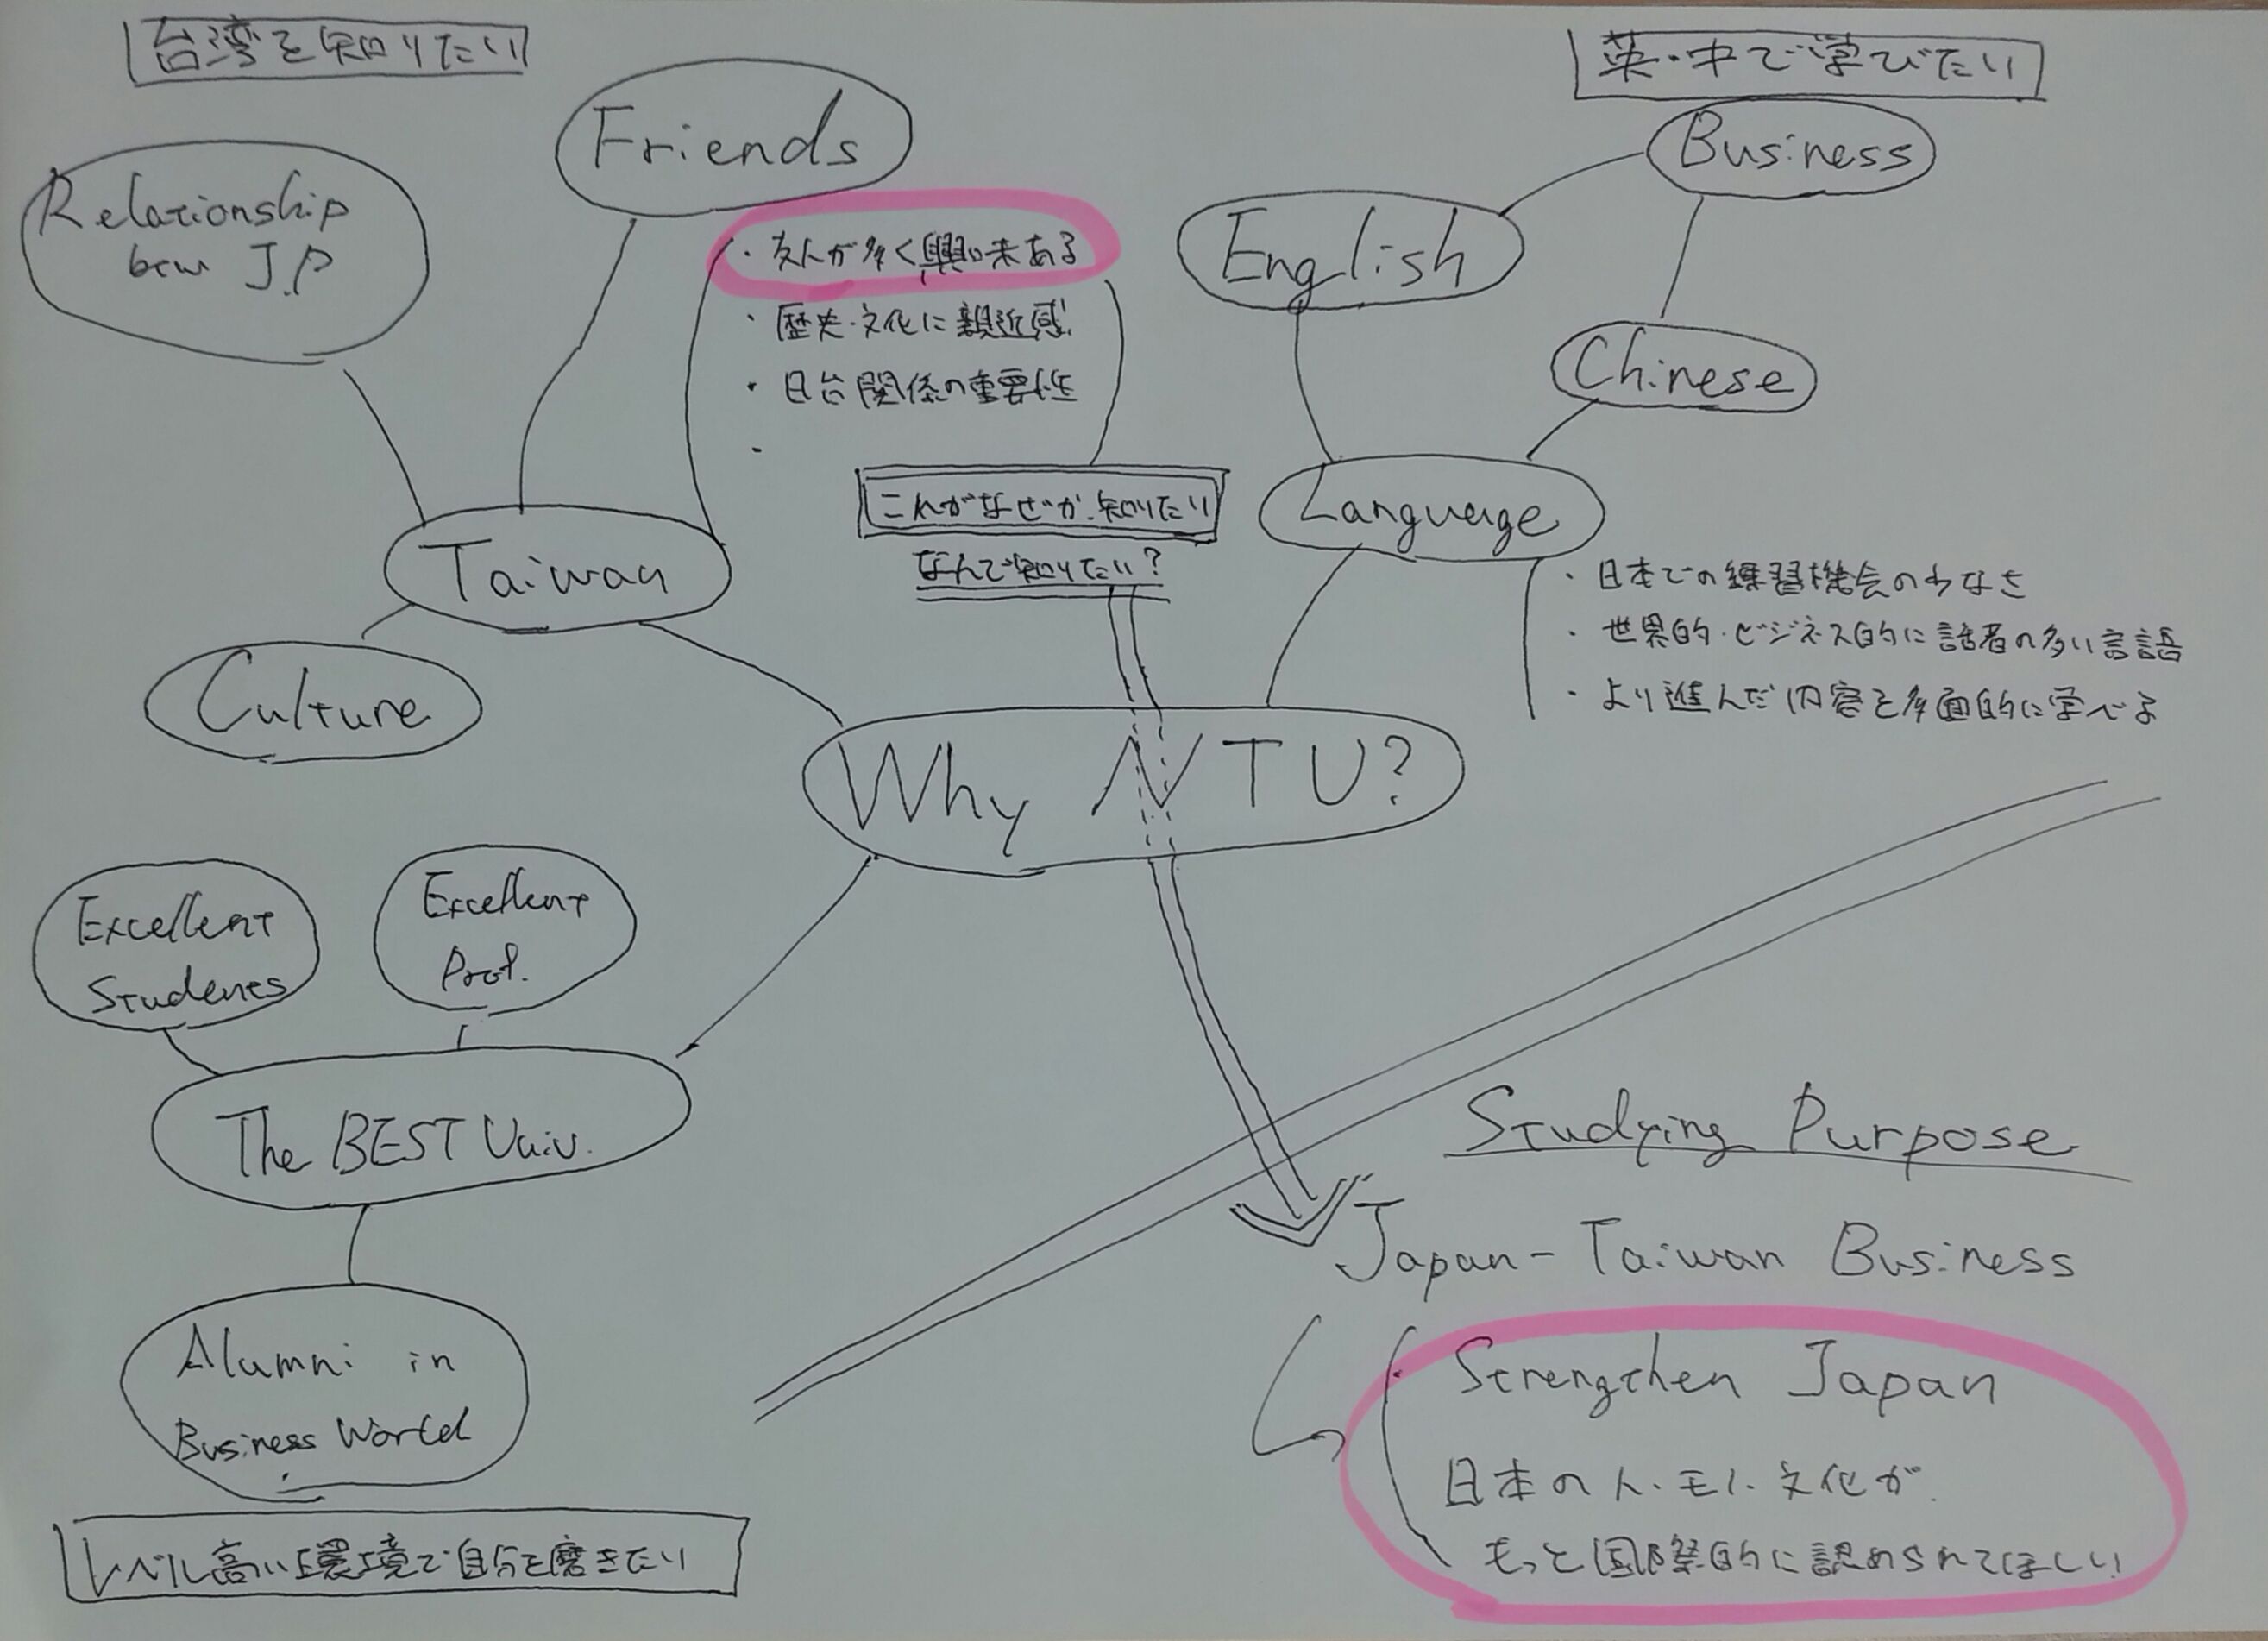 台湾を知りたい
英・中で学びたい
Friends
Business
Relationship
btw J.P
English
・友人が多く興味ある
・歴史・文化に親近感
・日台関係の重要性
・
Chinese
これがなぜか知りたい
なんで知りたい?
Language
Taiwan
・日本での練習機会の少なさ
・世界的・ビジネス的に話者の多い言語
・より進んだ内容を多面的に学べる
Culture
Why NTU?
Excellent
Students
Excellent
Prof.
The BEST Univ.
Alumni in
Business World
レベル高い環境で自分を磨きたい
Studying Purpose
Japan-Taiwan Business
・Strengthen Japan
日本の人・モノ・文化が
もっと国際的に認められてほしい